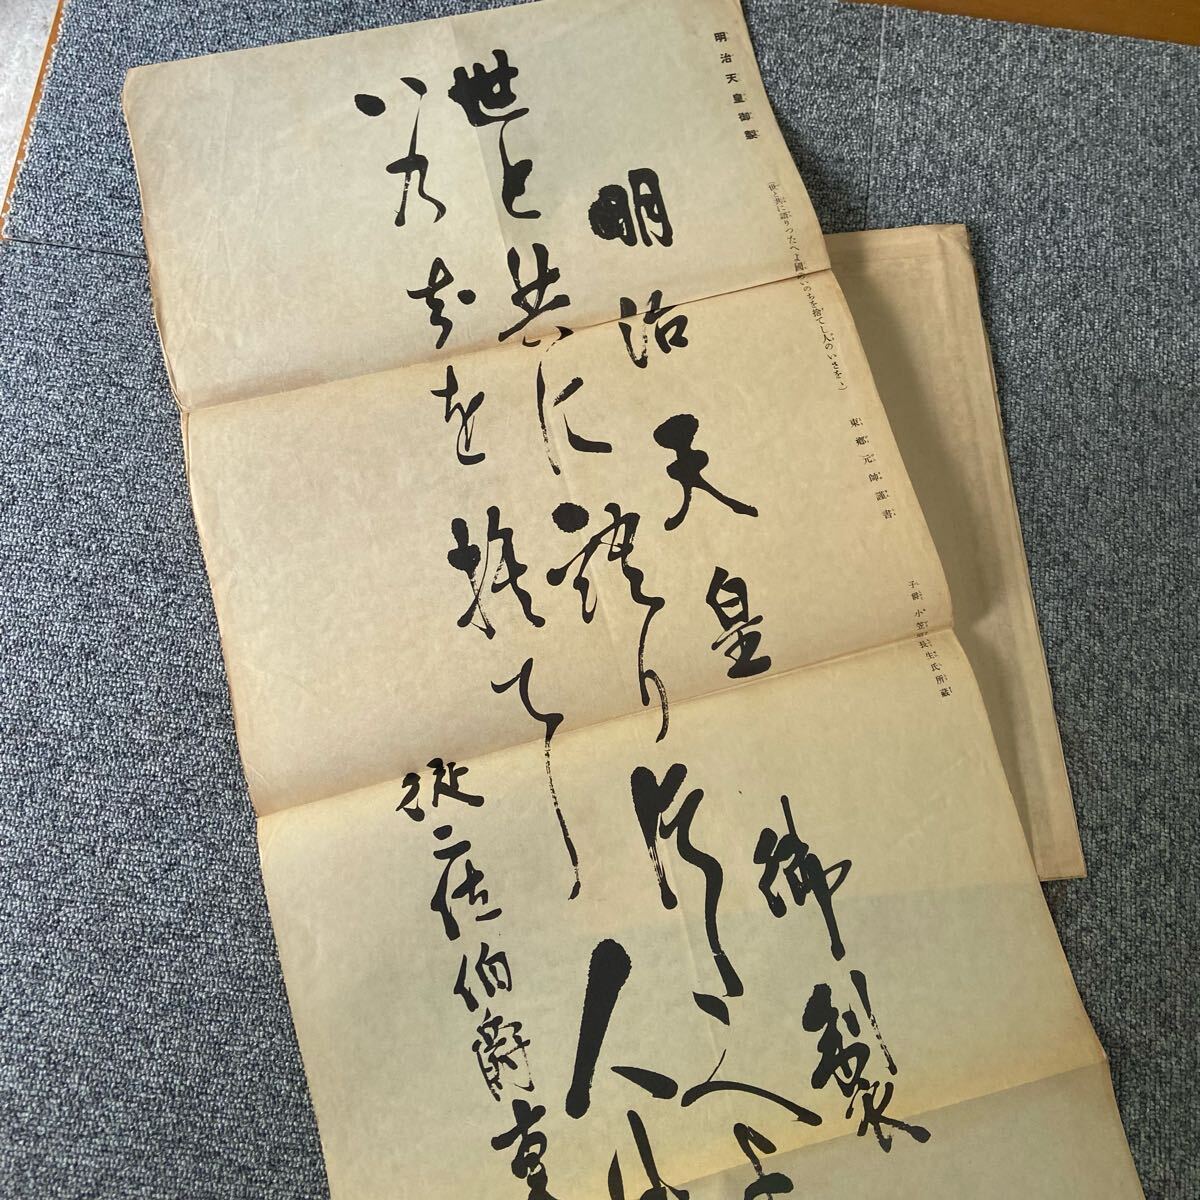 明治天皇御製
(世と共に語りつたへよ國のいのちを捨てし人のいさをゝ)
東郷元帥謹書
子爵小笠原長生氏所蔵
明治天皇御製
世と共に語り傳へよ
いのちを捨てし人
従二位伯爵東